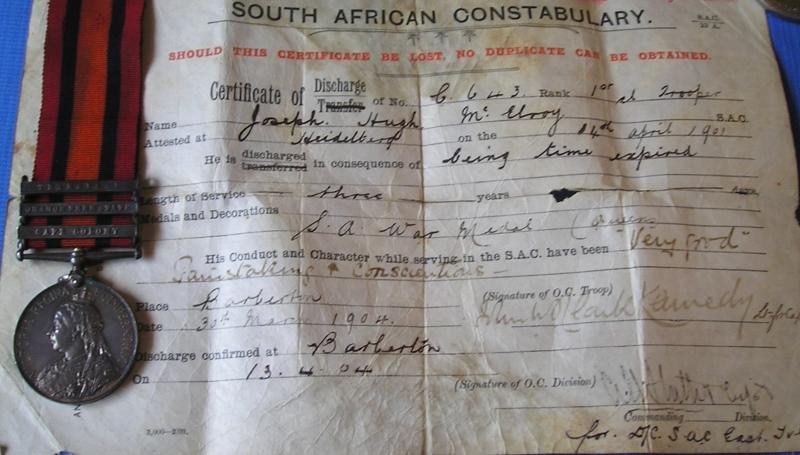 SOUTH AFRICAN CONSTABULARY.
S.A.C.
SHOULD THIS CERTIFICATE BE LOST, NO DUPLICATE CAN BE OBTAINED.
Certificate of Discharge Transfer of No. C. 643. Rank 1st cl Trooper
Name Joseph Hugh McElroy S.A.C.
Attested at Heidelberg on the 14th April 1901
He is discharged transferred in consequence of being time expired
Length of Service three years days.
Medals and Decorations S. A War Medal (Queens
His Conduct and Character while serving in the S.A.C. have been "Very good"
Painstaking & Conscientious —
Place Barberton
(Signature of O.C. Troop)
Date 30th March 1904.
Kennedy
Discharge confirmed at Barberton
On 13.4.04
(Signature of O.C. Division)
Commanding Division.
for. D/C. S.A.C East.
TRANSVAAL
ORANGE FREE STATE
CAPE COLONY